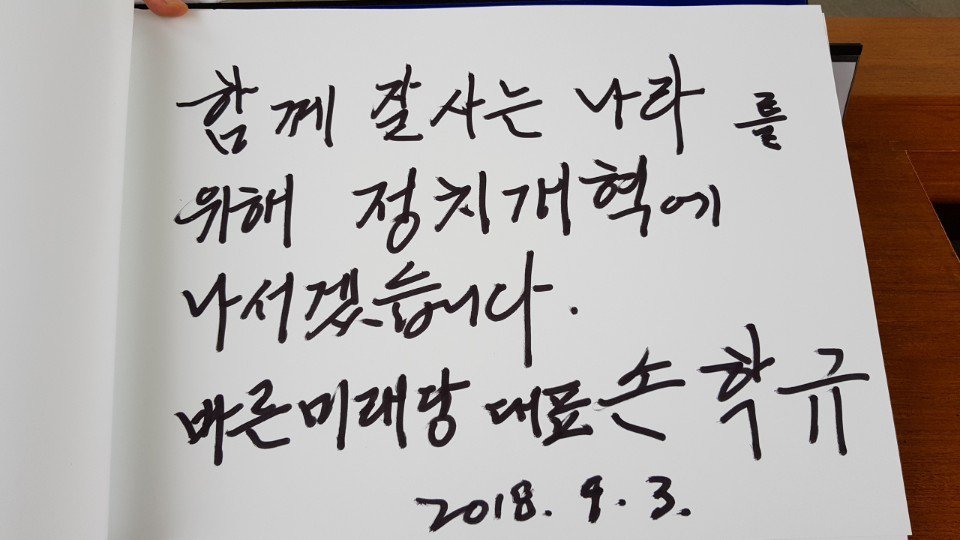 함께 잘사는 나라를
위해 정치개혁에
나서겠습니다.
바른미래당 대표 손학규
2018. 9. 3.